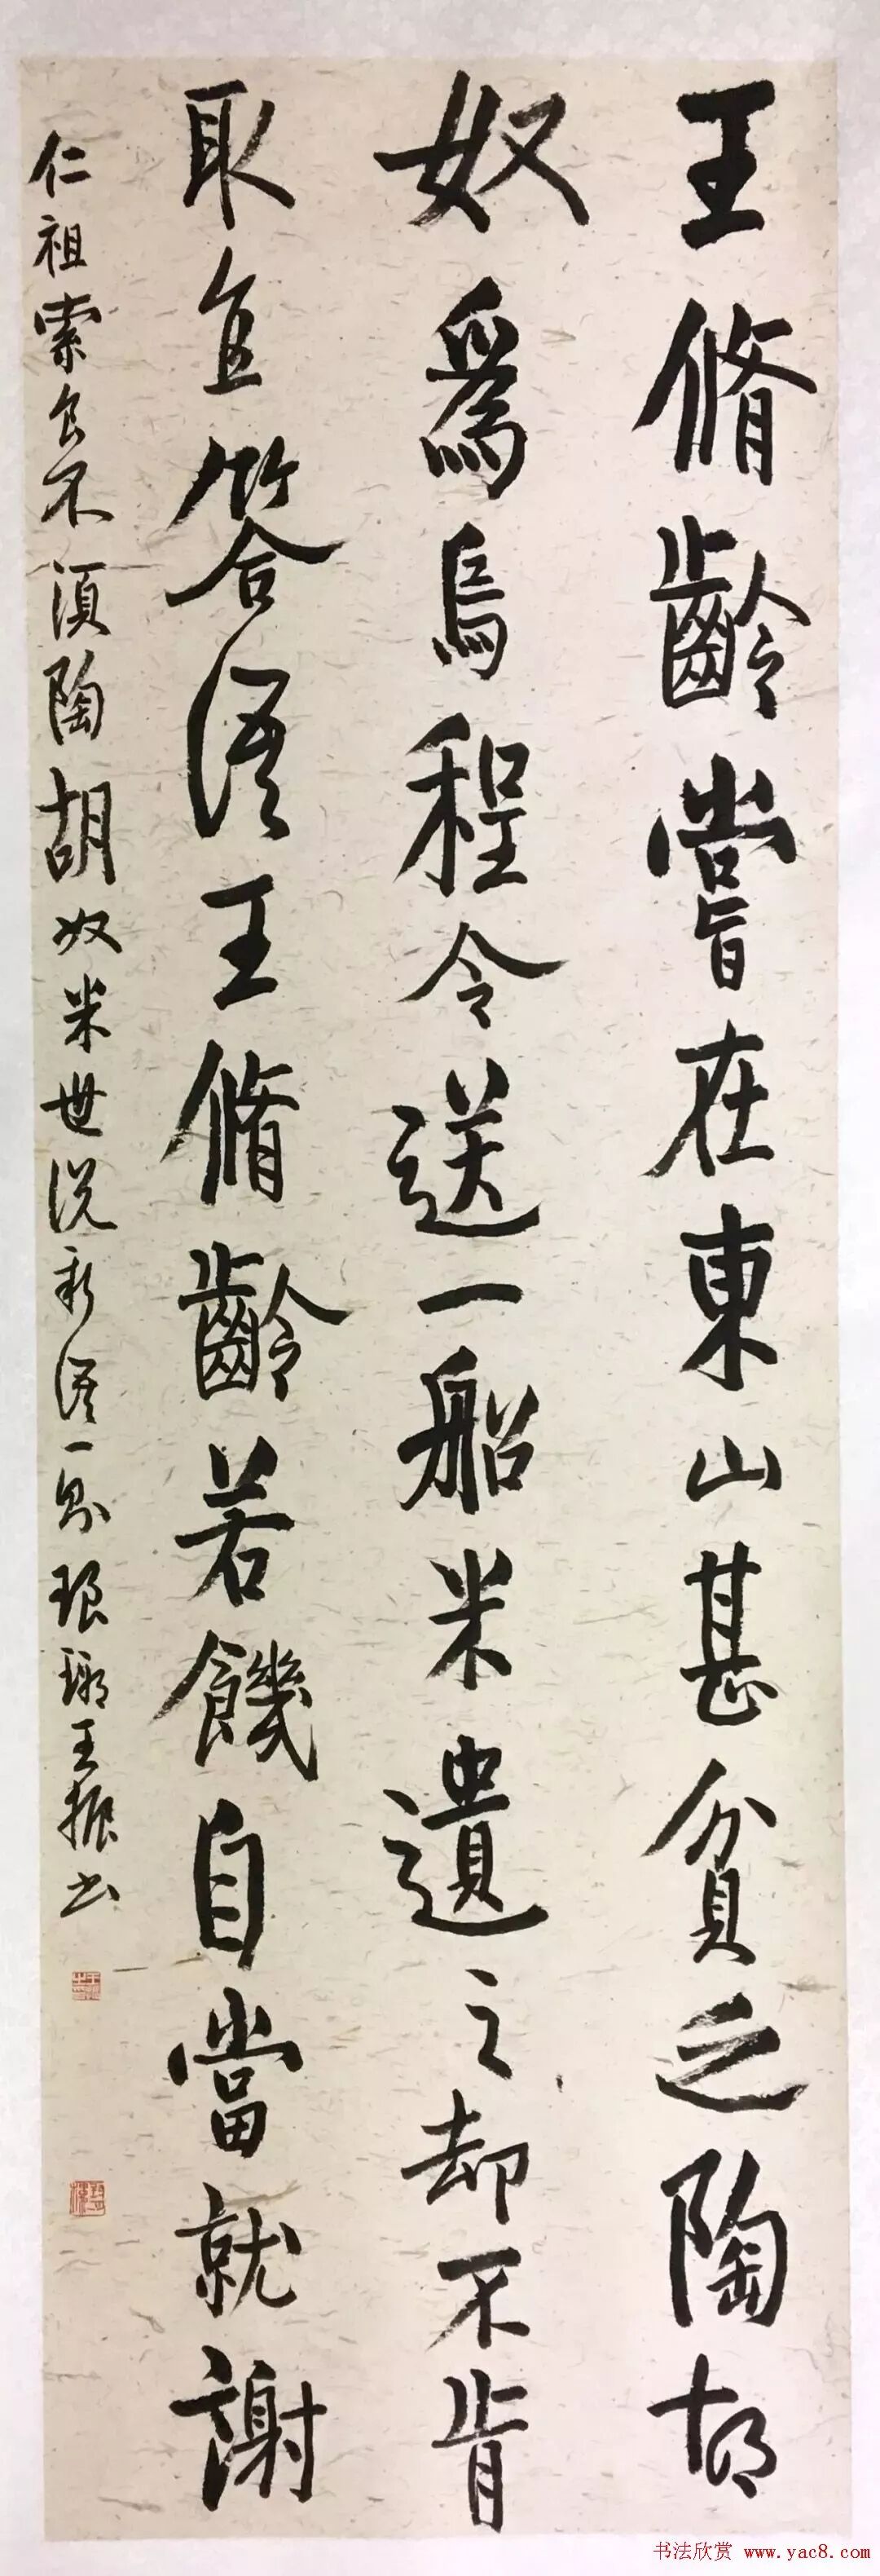 王脩齡嘗在東山甚貧乏陶胡
奴爲烏程令送一船米遺之却不肯
取直答語王脩齡若饑自當就謝
仁祖索食不須陶胡奴米世说新语一则琅琊王振书
书法欣赏 www.yac8.com